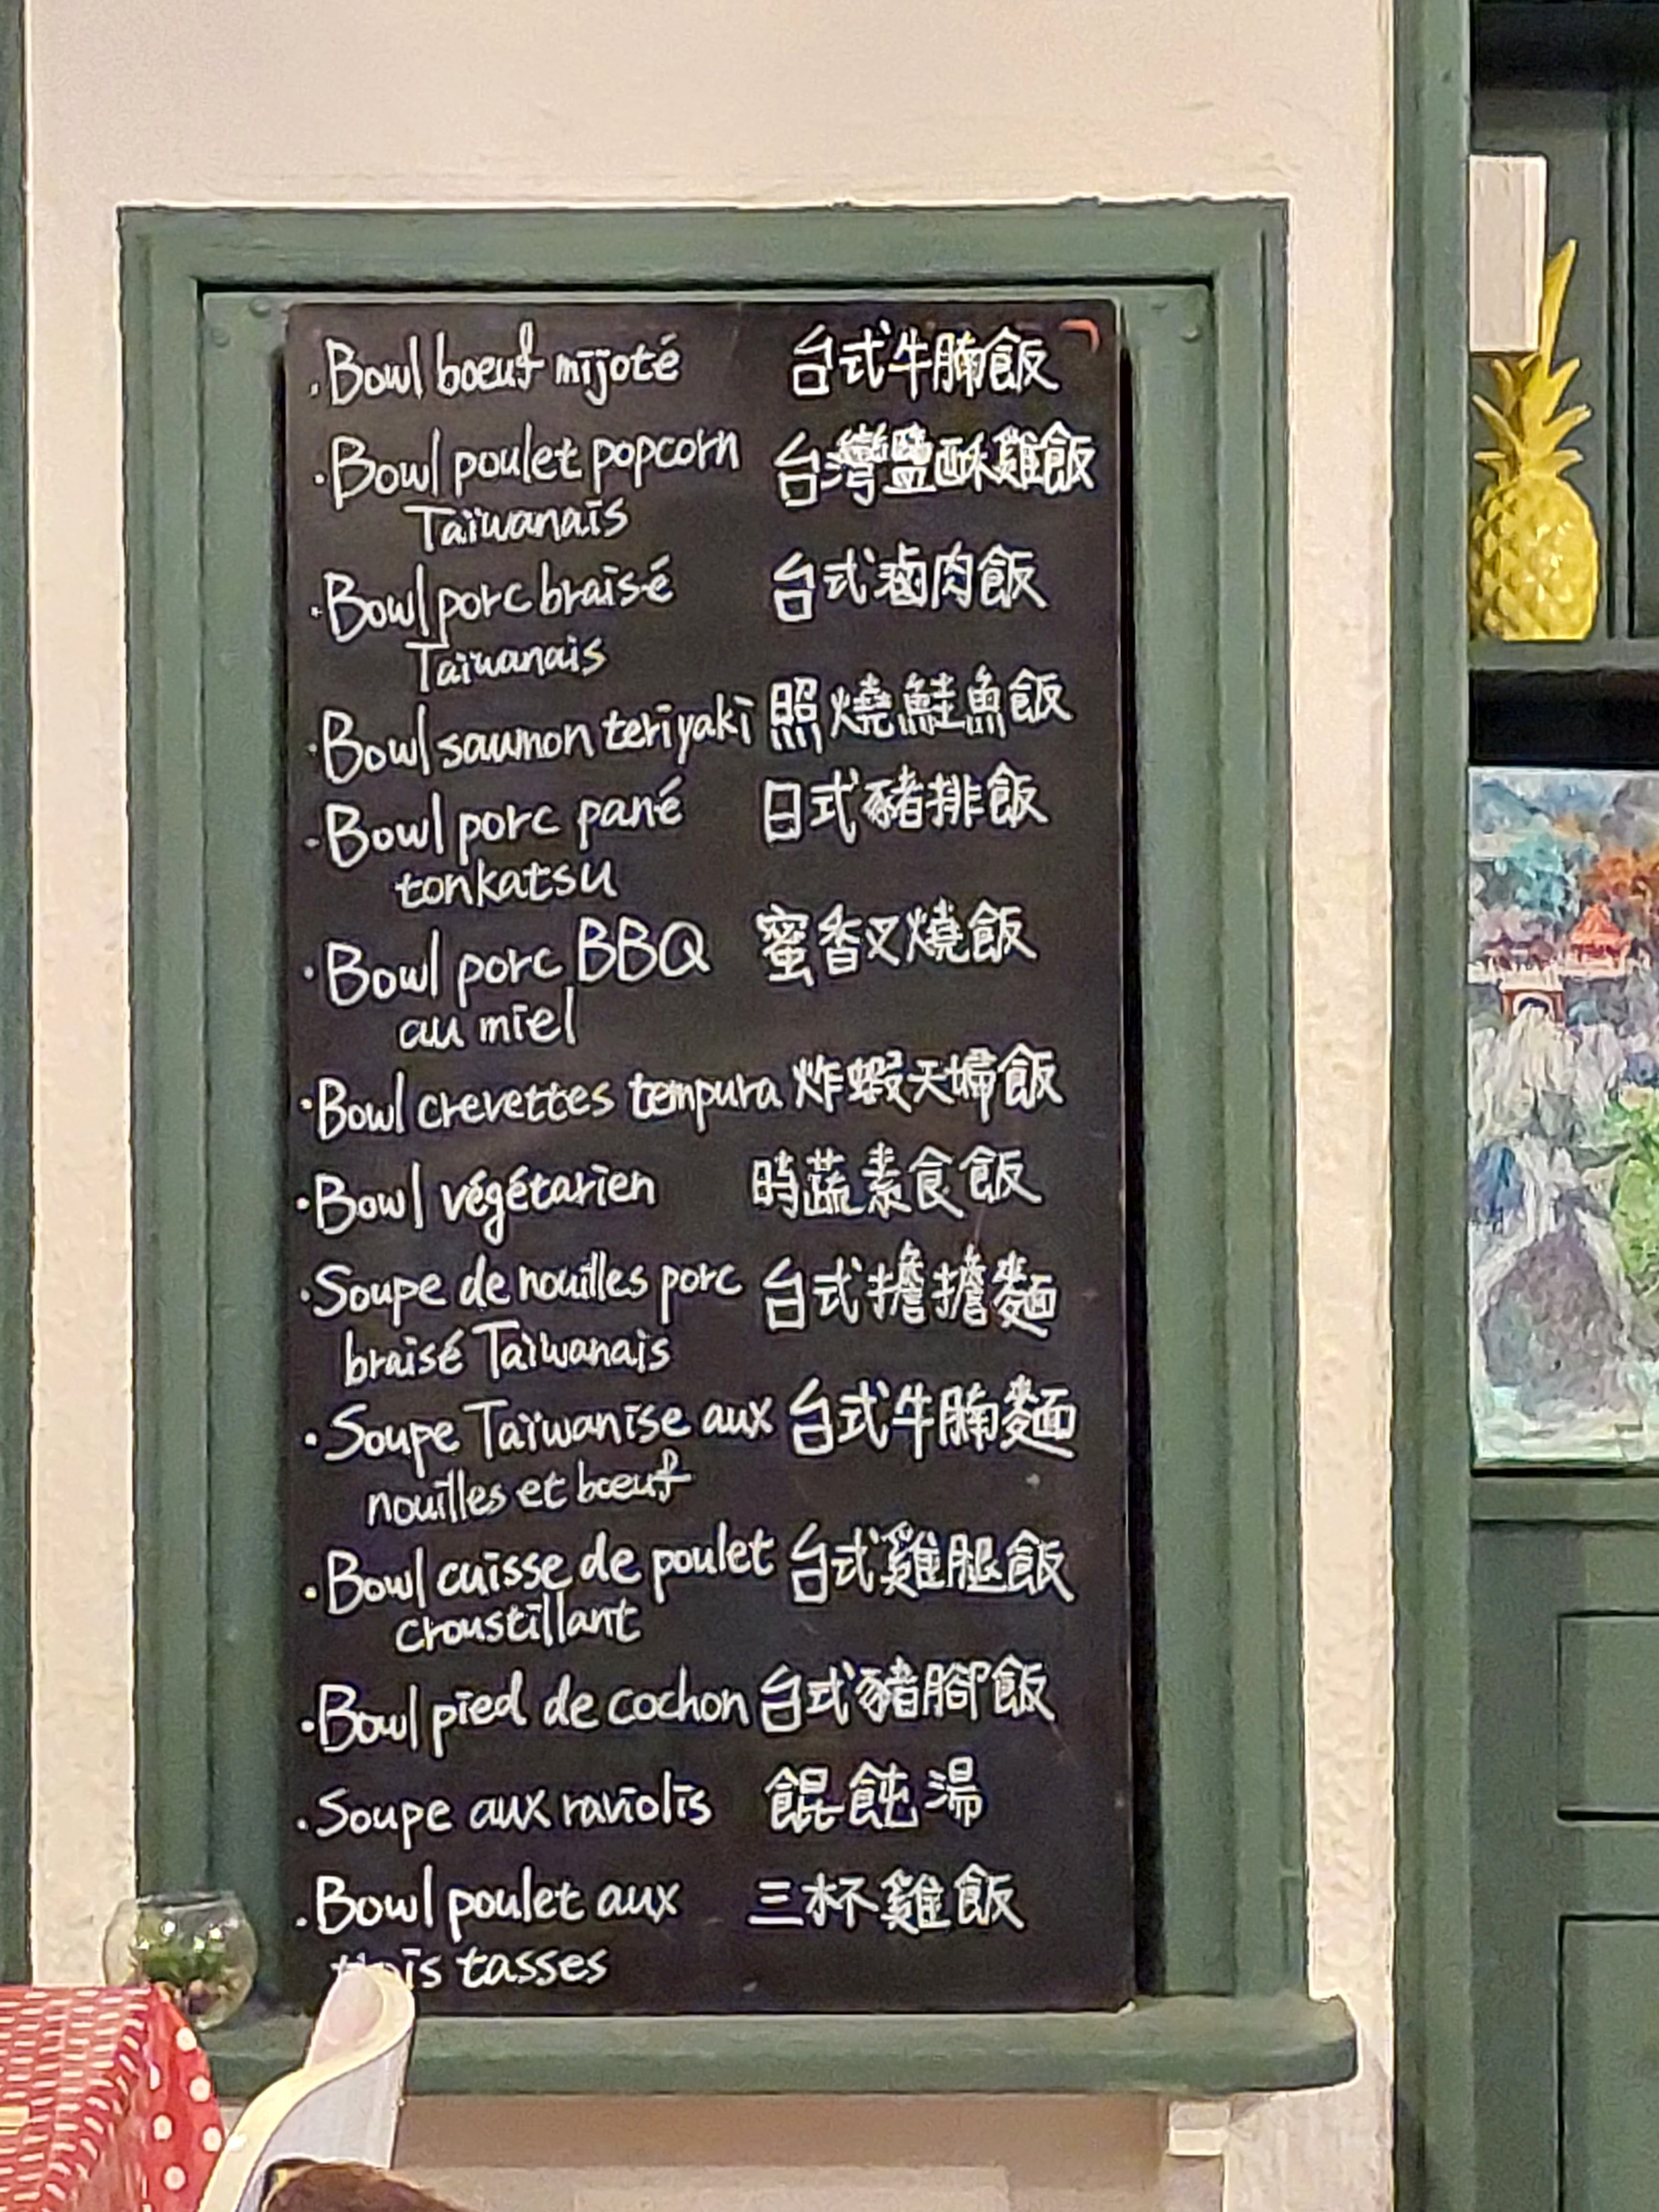 · Bowl boeuf mijoté 台式牛腩飯
· Bowl poulet popcorn 台灣鹽酥雞飯
Taïwanais
· Bowl porc braisé 台式滷肉飯
Taïwanais
· Bowl saumon teriyaki 照燒鮭魚飯
· Bowl porc pané 日式豬排飯
tonkatsu
· Bowl porc BBQ 蜜香叉燒飯
au miel
· Bowl crevettes tempura 炸蝦天婦飯
· Bowl végétarien 時蔬素食飯
· Soupe de nouilles porc 台式擔擔麵
braisé Taïwanais
· Soupe Taïwanise aux 台式牛腩麵
nouilles et bœuf
· Bowl cuisse de poulet 台式雞腿飯
croustillant
· Bowl pied de cochon 台式豬腳飯
· Soupe aux raviolis 餛飩湯
· Bowl poulet aux 三杯雞飯
trois tasses